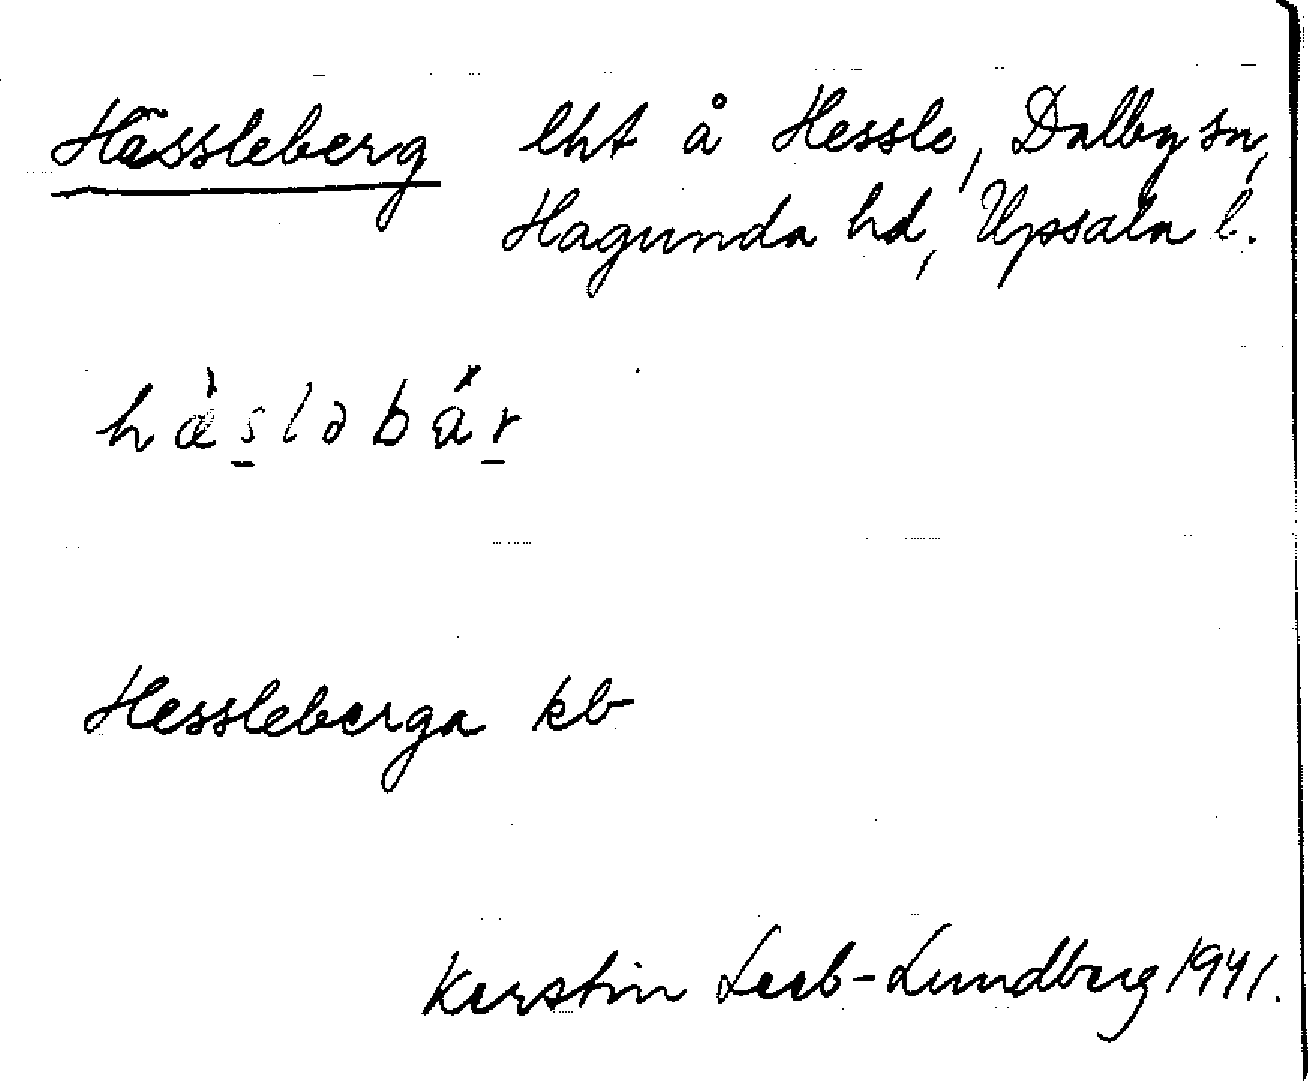 Hässleberg lht å Hessle, Dalby sn,
Hagunda hd, Upsala l.
hæ̀s̠ləbár̠
Hessleberga kb
Kerstin Leeb-Lundberg 1941.